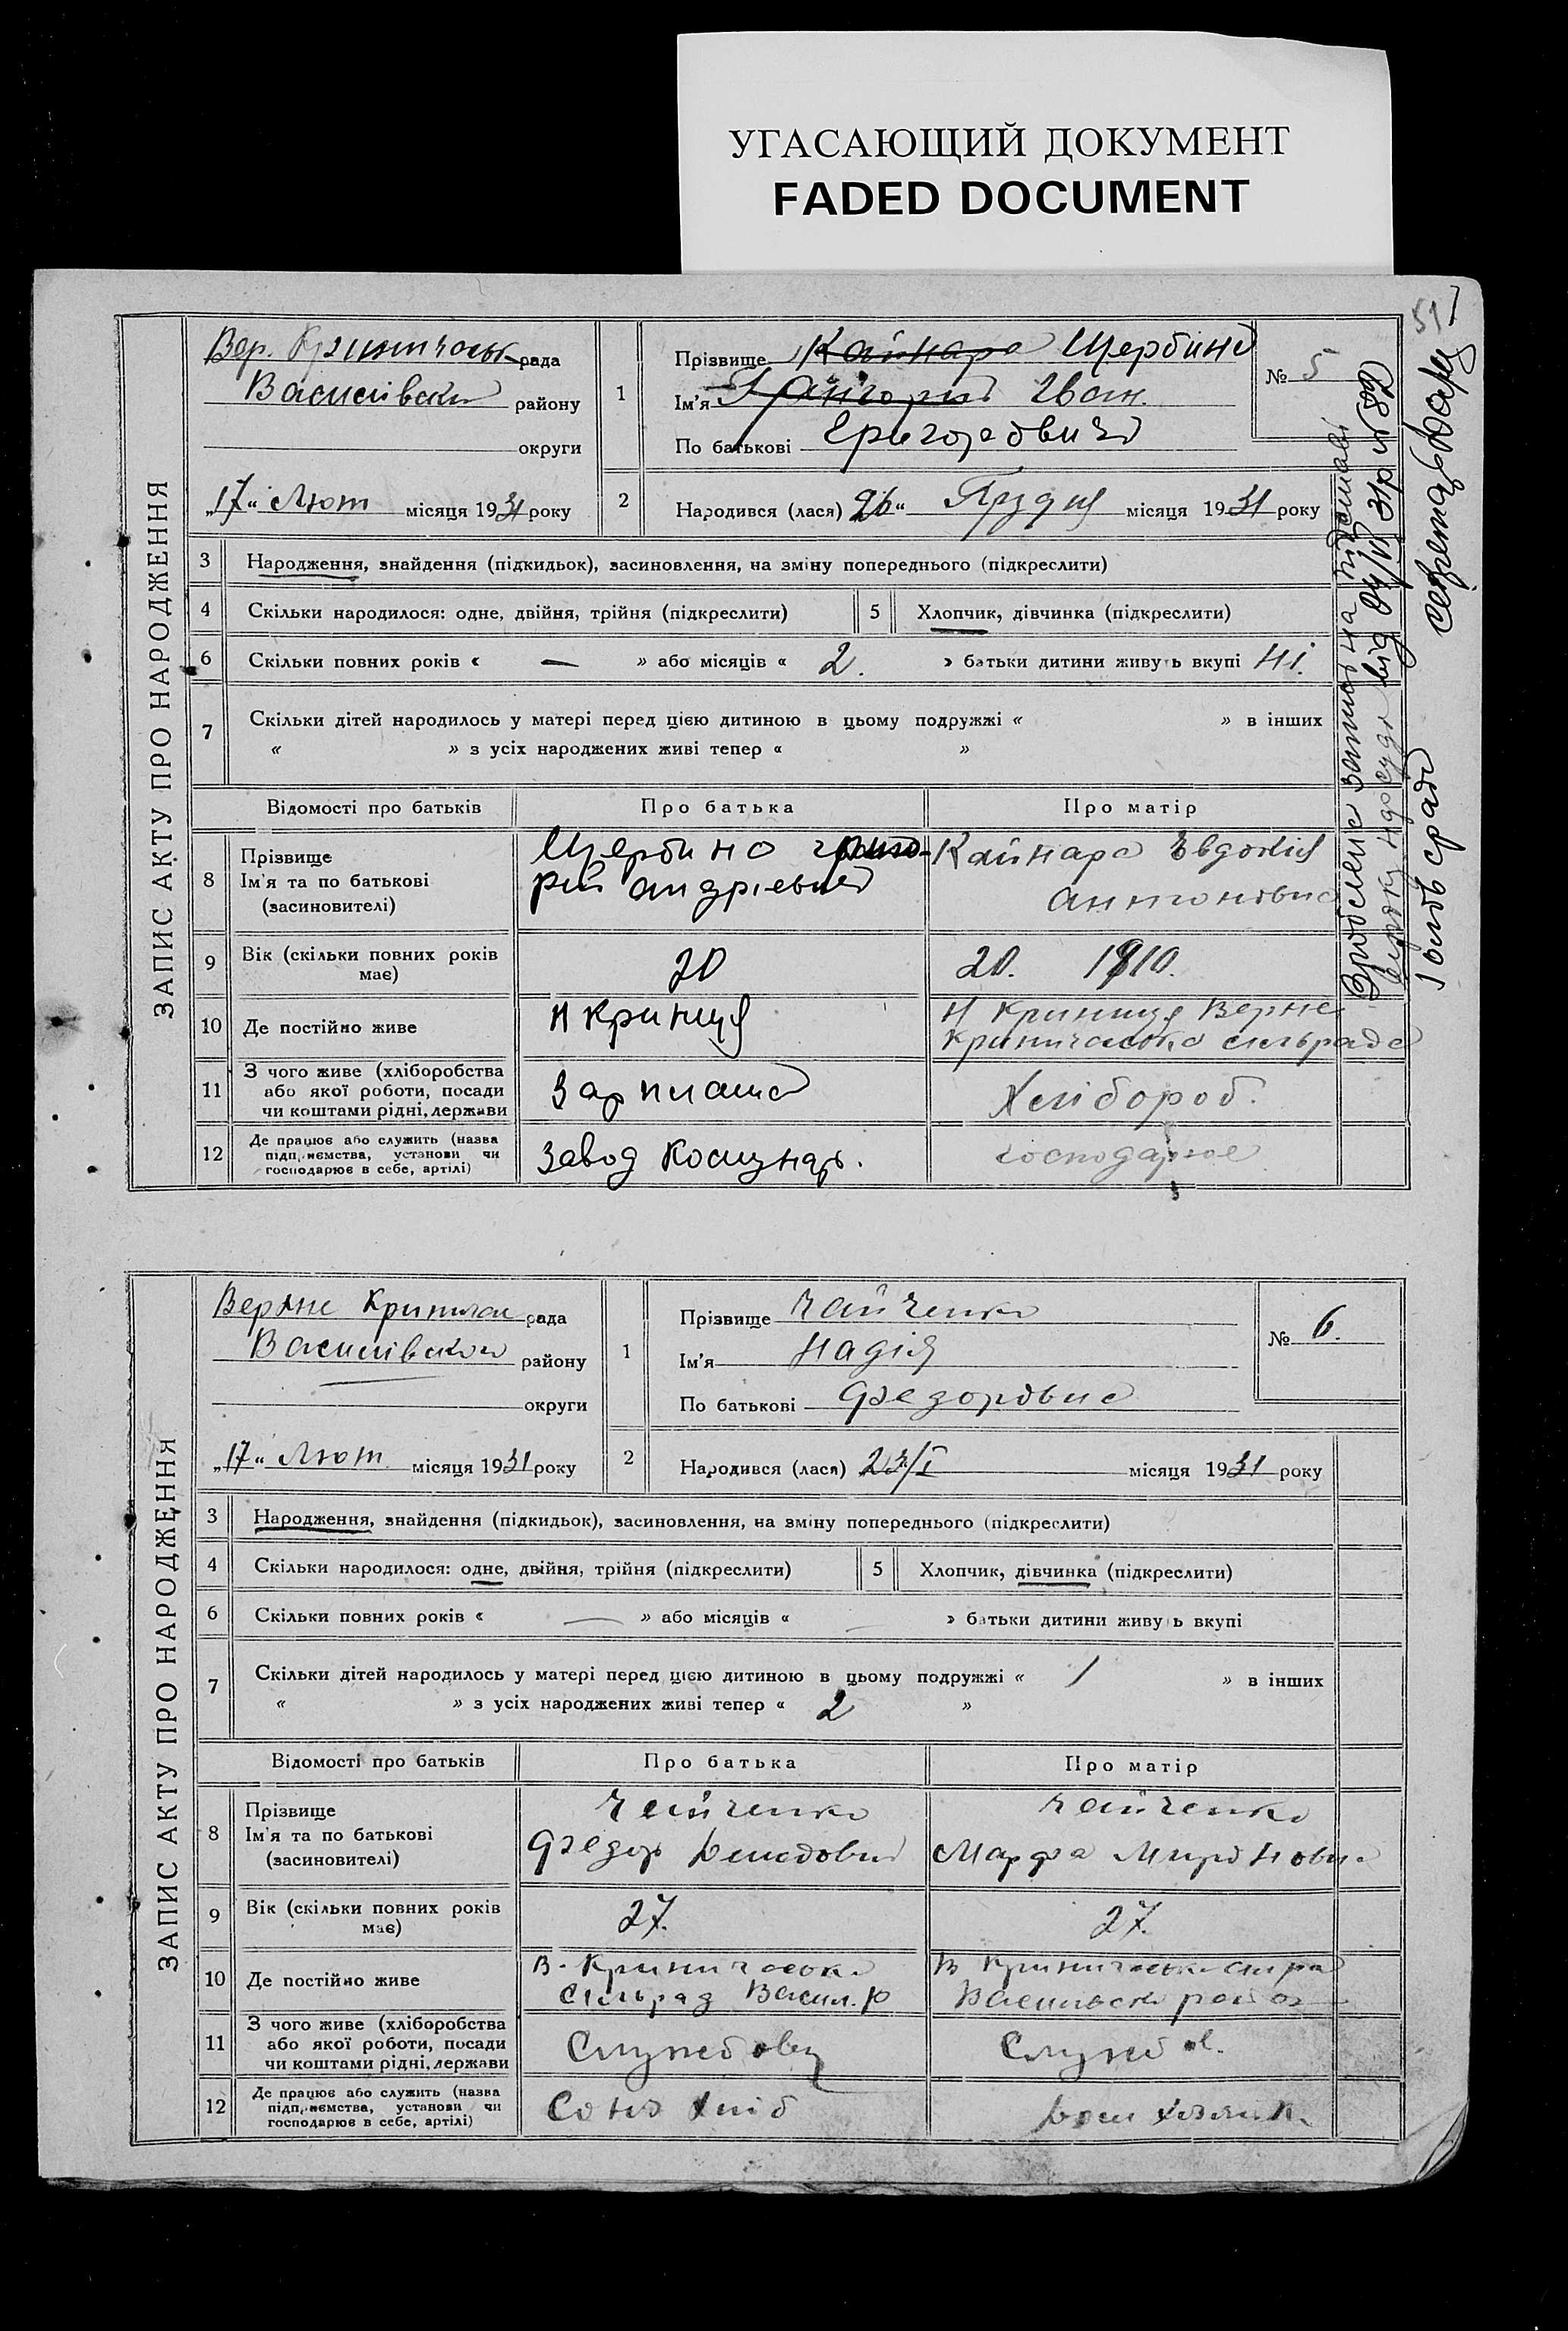 УГАСАЮЩИЙ ДОКУМЕНТ
FADED DOCUMENT
517
ЗАПИС АКТУ ПРО НАРОДЖЕННЯ
Вер. рада
Василівськ району
округи
„17“ Лют місяця 1931 року
1
Прізвище Кайнара Щербина
Ім'я Григорий Iван.
По батькові Григорович
№ 5
2
Народився (лася) 26“ Грудня місяця 1931 року
3 Народження, знайдення (підкидьок), засиновлення, на зміну попереднього (підкреслити)
4 Скільки народилося: одне, двійня, трійня (підкреслити) 5 Хлопчик, дівчинка (підкреслити)
6 Скільки повних років « — » або місяців « 2. » батьки дитини живуть вкупі Ні.
7 Скільки дітей народилось у матері перед цією дитиною в цьому подружжі « » в інших
« » з усіх народжених живі тепер « »
Відомості про батьків Про батька Про матір
8 Прізвище
Ім'я та по батькові
(засиновителі)
Щербина Григо-
рій Андрієвич
Кайнара Евдокія
Антоновна
9 Вік (скільки повних років
має)
20
20. 1910.
10 Де постійно живе
Н Криниця
Н Криниця Верхне
Криничаська сильрада
11 З чого живе (хліборобства
або якої роботи, посади
чи коштами рідні, держави
Зарплата
Хлібороб.
12 Де працює або служить (назва
підприємства, установи чи
господарює в себе, артілі)
завод Комунар.
господарює
Зроблена записьна підставі
від 24/VI 31р № 82
Голов сради секретарь
ЗАПИС АКТУ ПРО НАРОДЖЕННЯ
Верхне рада
Василівськой району
округи
„17“ Лют. місяця 1931 року
1
Прізвище Чайченко
Ім'я Надія
По батькові Федоровна
№ 6.
2
Народився (лася) 23/I місяця 1931 року
3 Народження, знайдення (підкидьок), засиновлення, на зміну попереднього (підкреслити)
4 Скільки народилося: одне, двійня, трійня (підкреслити) 5 Хлопчик, дівчинка (підкреслити)
6 Скільки повних років « — » або місяців « » батьки дитини живуть вкупі
7 Скільки дітей народилось у матері перед цією дитиною в цьому подружжі « 1 » в інших
« » з усіх народжених живі тепер « 2 »
Відомості про батьків Про батька Про матір
8 Прізвище
Ім'я та по батькові
(засиновителі)
Чайченко
Федор
Чайченко
Марфа Мироновна
9 Вік (скільки повних років
має)
27.
27.
10 Де постійно живе
В. Криничаська
сильрад Васил. р
В Криничаська
район
11 З чого живе (хліборобства
або якої роботи, посади
чи коштами рідні, держави
Службовец
Служб
12 Де працює або служить (назва
підприємства, установи чи
господарює в себе, артілі)
Союз хліб
Дом хазяйк.